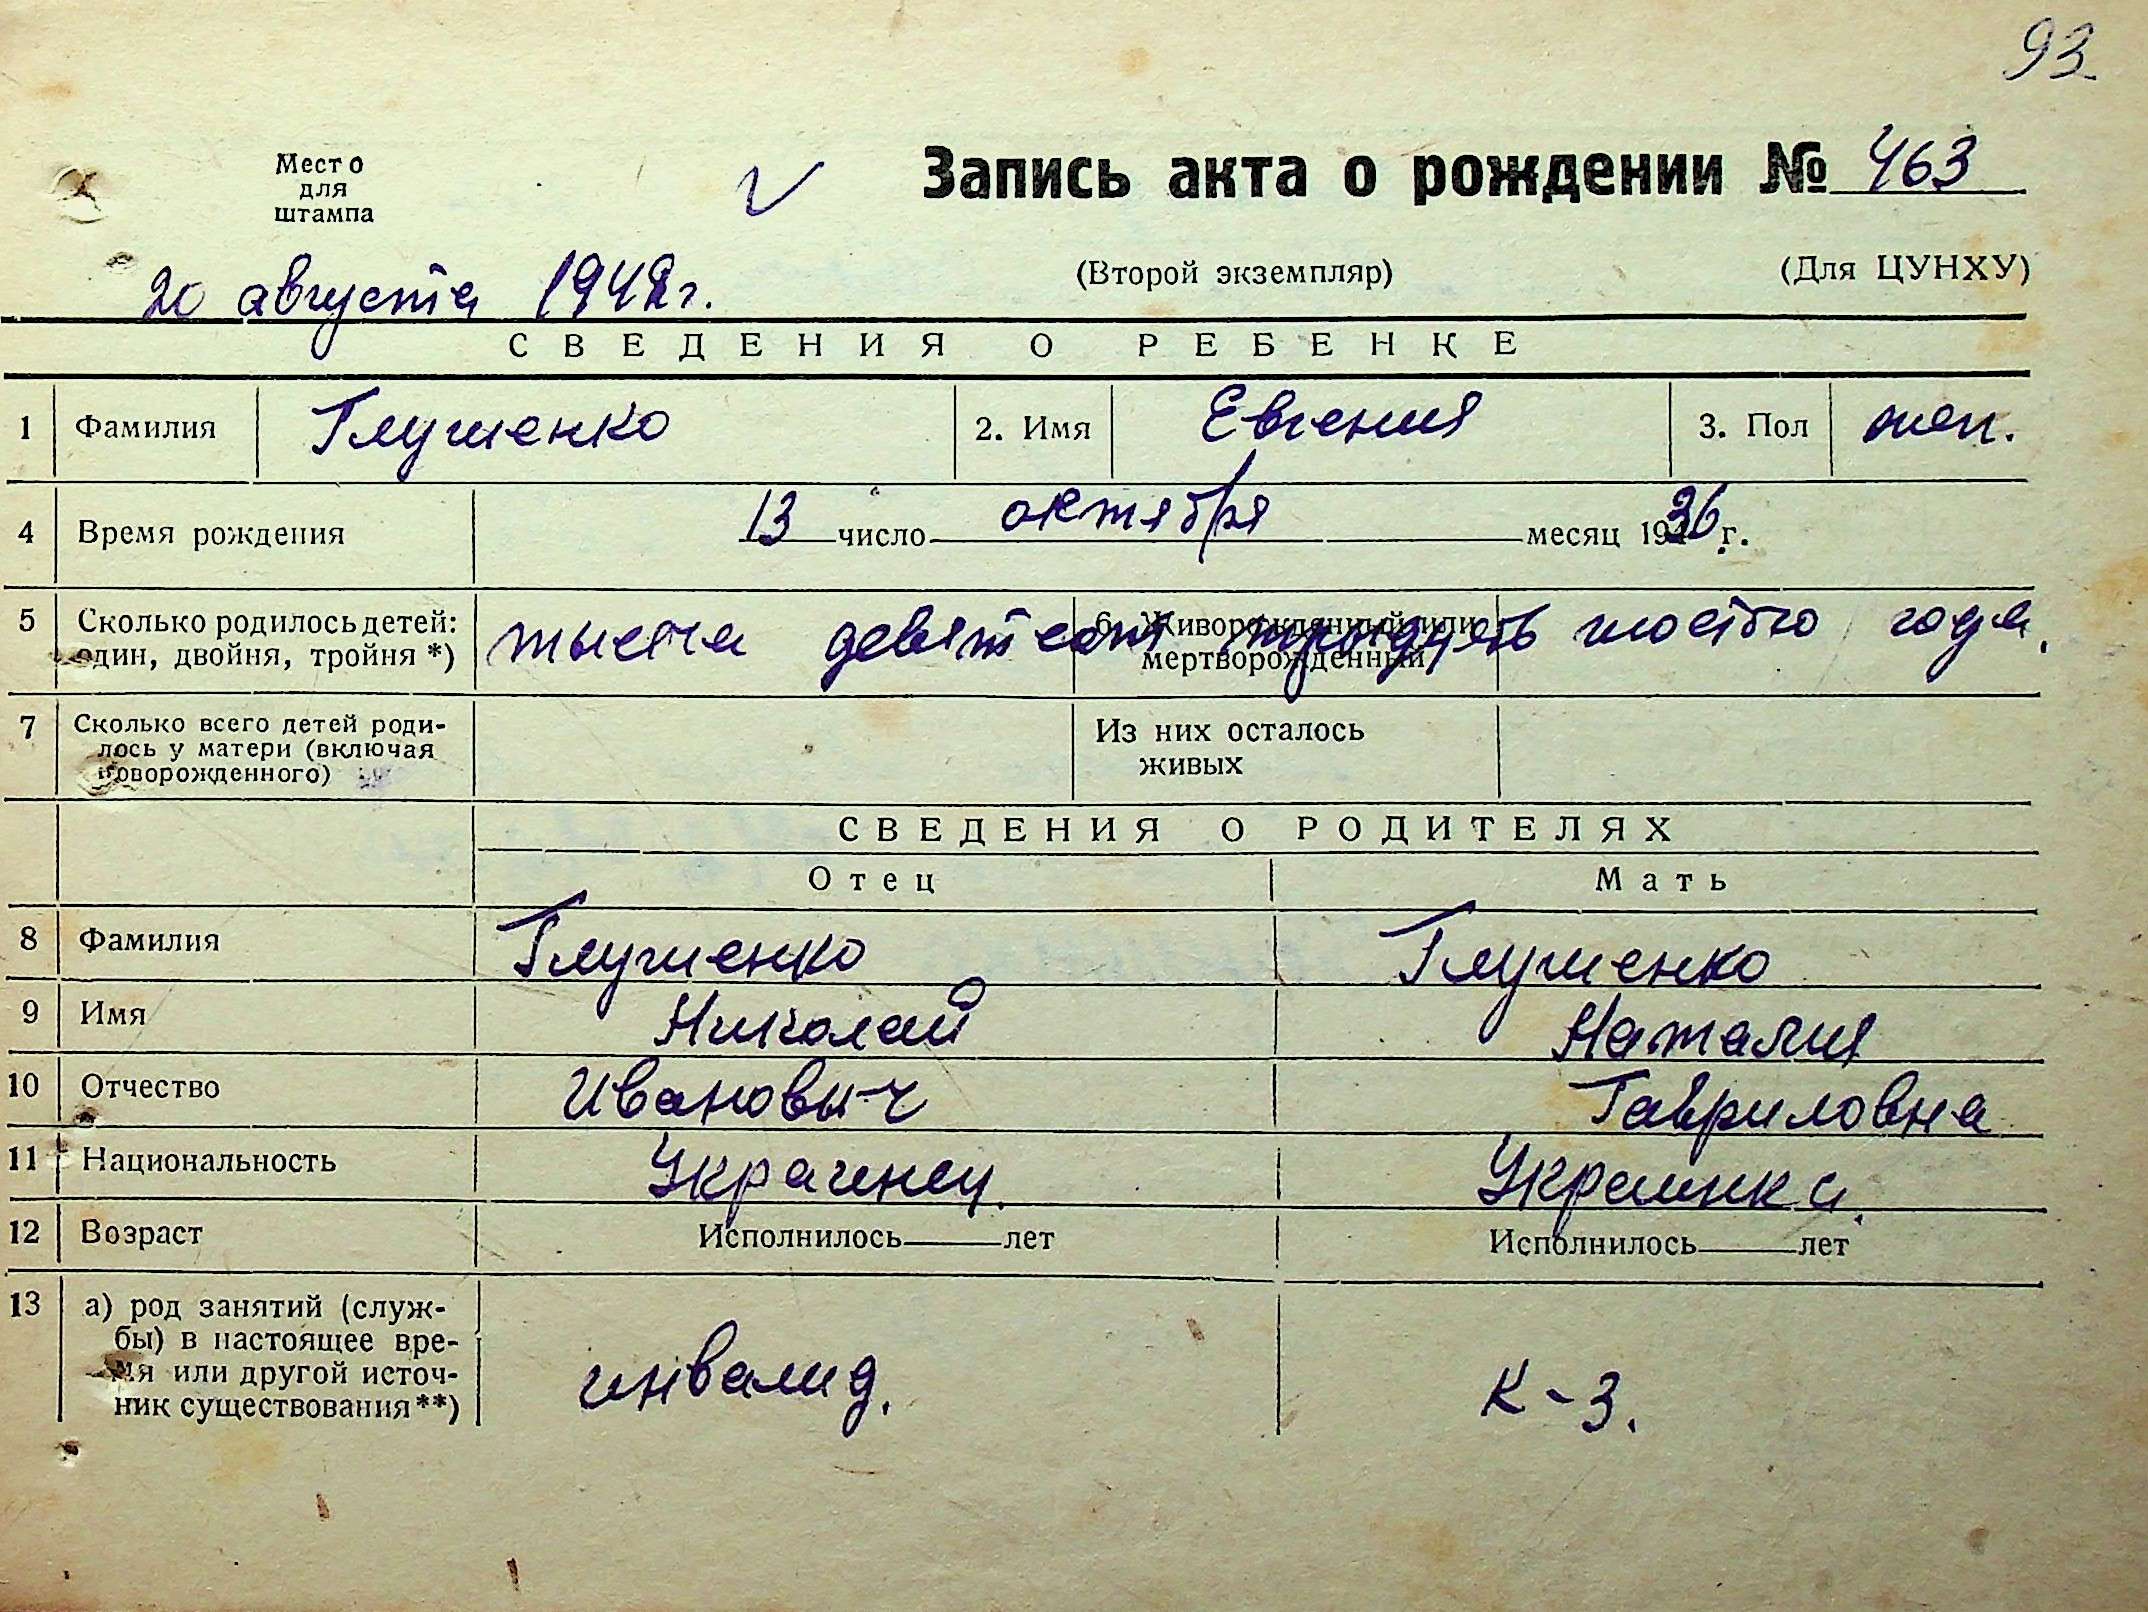 93
Место
для
штампа
Запись акта о рождении № 463
20 августа 1942 г.
(Второй экземпляр) (Для ЦУНХУ)
СВЕДЕНИЯ О РЕБЕНКЕ
1 Фамилия Глушенко 2. Имя Евгения 3. Пол жен.
4 Время рождения 13 число октября месяц 1936 г.
5 Сколько родилось детей: один, двойня, тройня *) 6. Живорожденный или мертворожденный
тысяча девятсот тридцать шостью года.
7 Сколько всего детей роди-
лось у матери (включая
новорожденного)
Из них осталось
живых
СВЕДЕНИЯ О РОДИТЕЛЯХ
Отец Мать
8 Фамилия Глушенко Глушенко
9 Имя Николай Наталия
10 Отчество Иванович Гавриловна
11 Национальность Украинец. Украинка.
12 Возраст Исполнилось лет Исполнилось лет
13 а) род занятий (служ-
бы) в настоящее вре-
мя или другой источ-
ник существования **)
инвалид. К-з.